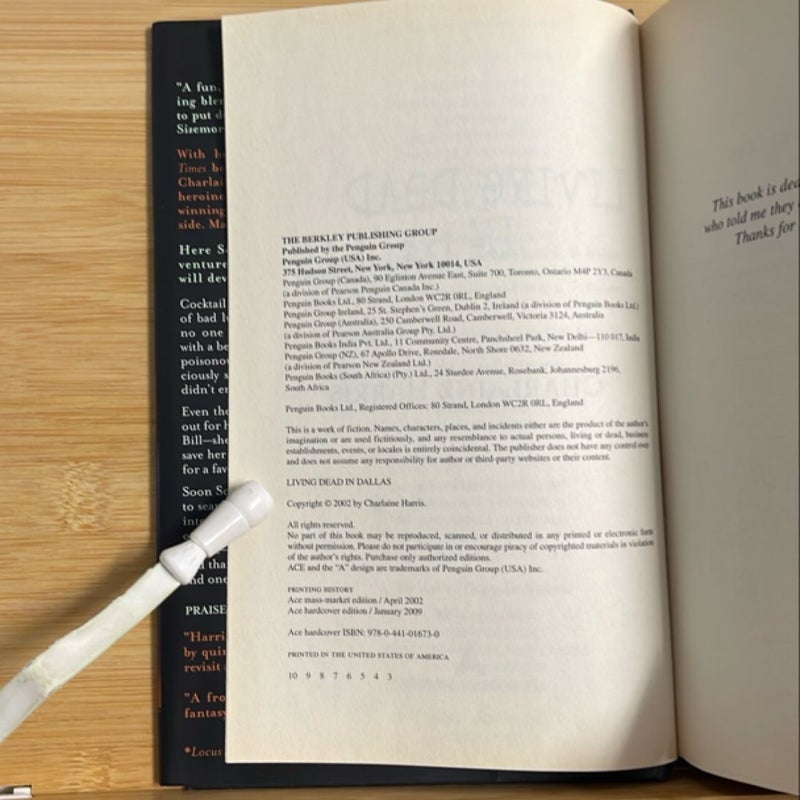 "A fun,
ing
to put
Sizemor
With
Times
Charlai
heroine
winning
side.
Here
venture
will
Cocktail
of bad
no one
with a
poisono
ciously
didn't
Even the
out for
Bill—she
save her
for a
Soon
to
tha
nd one
PRAISE
"Harri
by
revisit
"A fro
fantasy
*Locus
THE BERKLEY PUBLISHING GROUP
Published by the Penguin Group
Penguin Group (USA) Inc.
375 Hudson Street, New York, New York 10014, USA
Penguin Group (Canada), 90 Eglinton Avenue East, Suite 700, Toronto, Ontario M4P 2Y3, Canada
(a division of Pearson Penguin Canada Inc.)
Penguin Books Ltd., 80 Strand, London WC2R 0RL, England
Penguin Group Ireland, 25 St. Stephen's Green, Dublin 2, Ireland (a division of Penguin Books Ltd.)
Penguin Group (Australia), 250 Camberwell Road, Camberwell, Victoria 3124, Australia
(a division of Pearson Australia Group Pty. Ltd.)
Penguin Books India Pvt. Ltd., 11 Community Centre, Panchsheel Park, New Delhi—110 017, India
Penguin Group (NZ), 67 Apollo Drive, Rosedale, North Shore 0632, New Zealand
(a division of Pearson New Zealand Ltd.)
Penguin Books (South Africa) (Pty.) Ltd., 24 Sturdee Avenue, Rosebank, Johannesburg 2196,
South Africa
Penguin Books Ltd., Registered Offices: 80 Strand, London WC2R 0RL, England
This is a work of fiction. Names, characters, places, and incidents either are the product of the author's
imagination or are used fictitiously, and any resemblance to actual persons, living or dead, business
establishments, events, or locales is entirely coincidental. The publisher does not have any control over
and does not assume any responsibility for author or third-party websites or their content.
LIVING DEAD IN DALLAS
Copyright © 2002 by Charlaine Harris.
All rights reserved.
No part of this book may be reproduced, scanned, or distributed in any printed or electronic form
without permission. Please do not participate in or encourage piracy of copyrighted materials in violation
of the author's rights. Purchase only authorized editions.
ACE and the "A" design are trademarks of Penguin Group (USA) Inc.
PRINTING HISTORY
Ace mass-market edition / April 2002
Ace hardcover edition / January 2009
Ace hardcover ISBN: 978-0-441-01673-0
PRINTED IN THE UNITED STATES OF AMERICA
10 9 8 7 6 5 4 3
This book is ded
who told me they
Thanks for